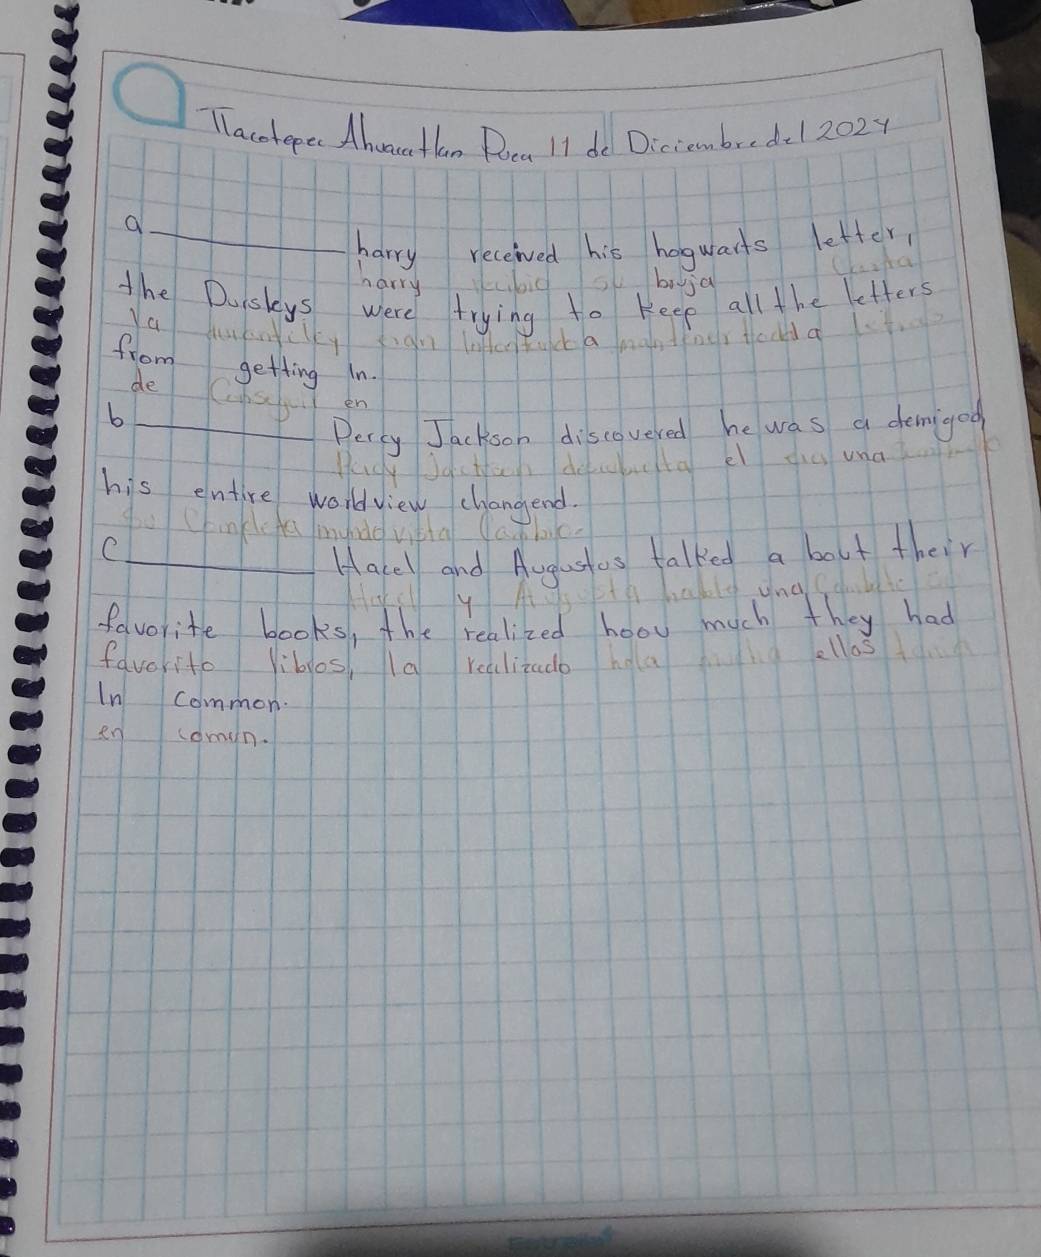 Tlacotepec Ahuacatlan Puea 11 de Diciembre del 2024
a harry received his hogwarts letter,
harry su bruja Carta
the Dursleys were trying to keep all the letters
la eran a letras
from getting In.
de Conseguir en
b Percy Jackson discovered he was a demigod,
Percy Jackson el una
his entire world view changend.
su Completa mundo vista Cambio.
C Hacel and Augustus talked a bout their
Hacel y Augusta hablo una
favorite books, the realized hoou much they had
favorito libros, la realizado hola mucho ellos
In common.
en comun.